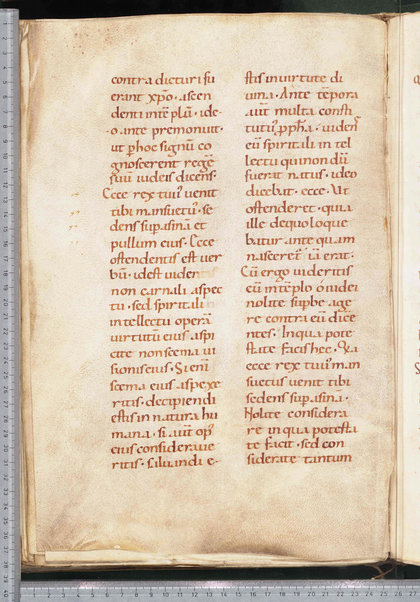 contra dicturi fu
erant xp̄o. ascen
denti in tēplū. ide
o ante premonuit.
ut p hoc signū co
gnoscerent regē
suū iudeis dicens.
Ecce rex tuus uenit
tibi mansuetus. se
dens sup asinā et
pullum eius. Ecce
ostendentis est uer
bū. idest uidentis
non carnali aspec
tu. sed spiritali
intellectu operā
uirtutū eius aspi
cite non scema ui
sionis eius. Si eni
scema eius aspexe
ritis. decipiendi
estis in natura hu
mana. si aūt op
eius considerave
ritis. saluandi e
stis in uirtute di
uina. Ante tēpora
aūt multa consti
tutus ppha. uidens
eū spiritali in tel
lectu qui non dū
fuerat natus. ideo
dicebat. ecce. Ut
ostenderet. quia
ille de quo loque
batur ante quam
nasceret iā erat.
Cū ergo uideritis
eū in tēplo o iudei
nolite supbe age
re contra eū dice
ntes. In qua pote
state facis hec. Sꝫ a
ecce rex tuus man
suetus uenit tibi
sedens sup asinā.
Nolite considera
re in qua potesta
te facit. sed con
siderate tantum